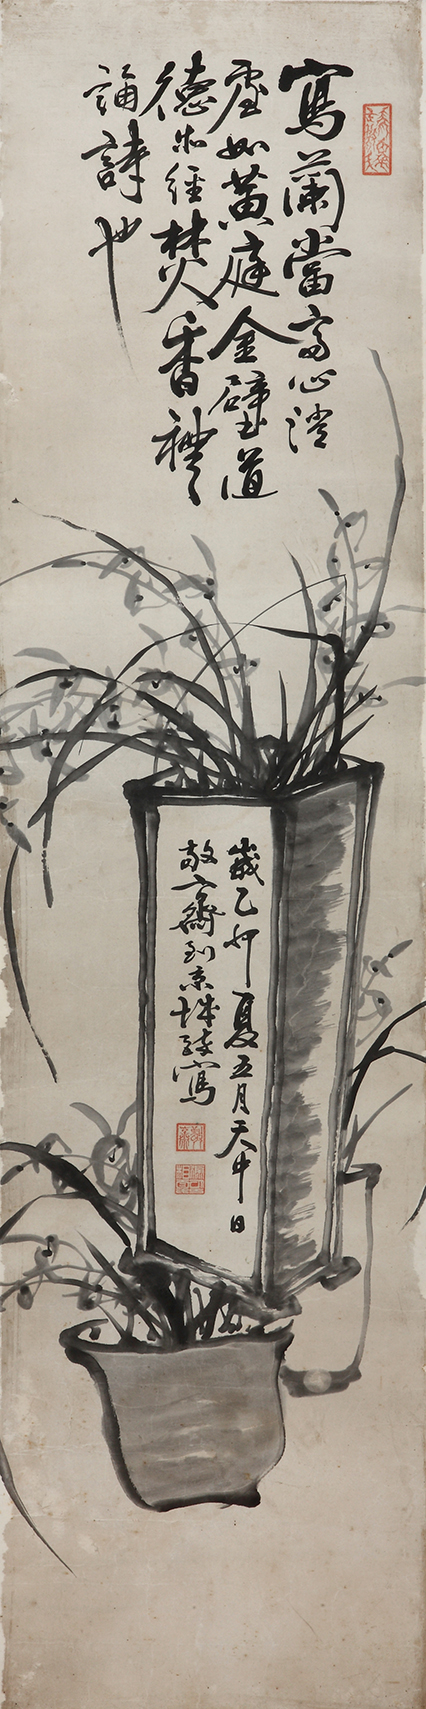 寫蘭當齋心澄
慮如黃庭金壁道
德經焚香禮
誦也
歲乙卯夏五月天中日
齋到京城寫